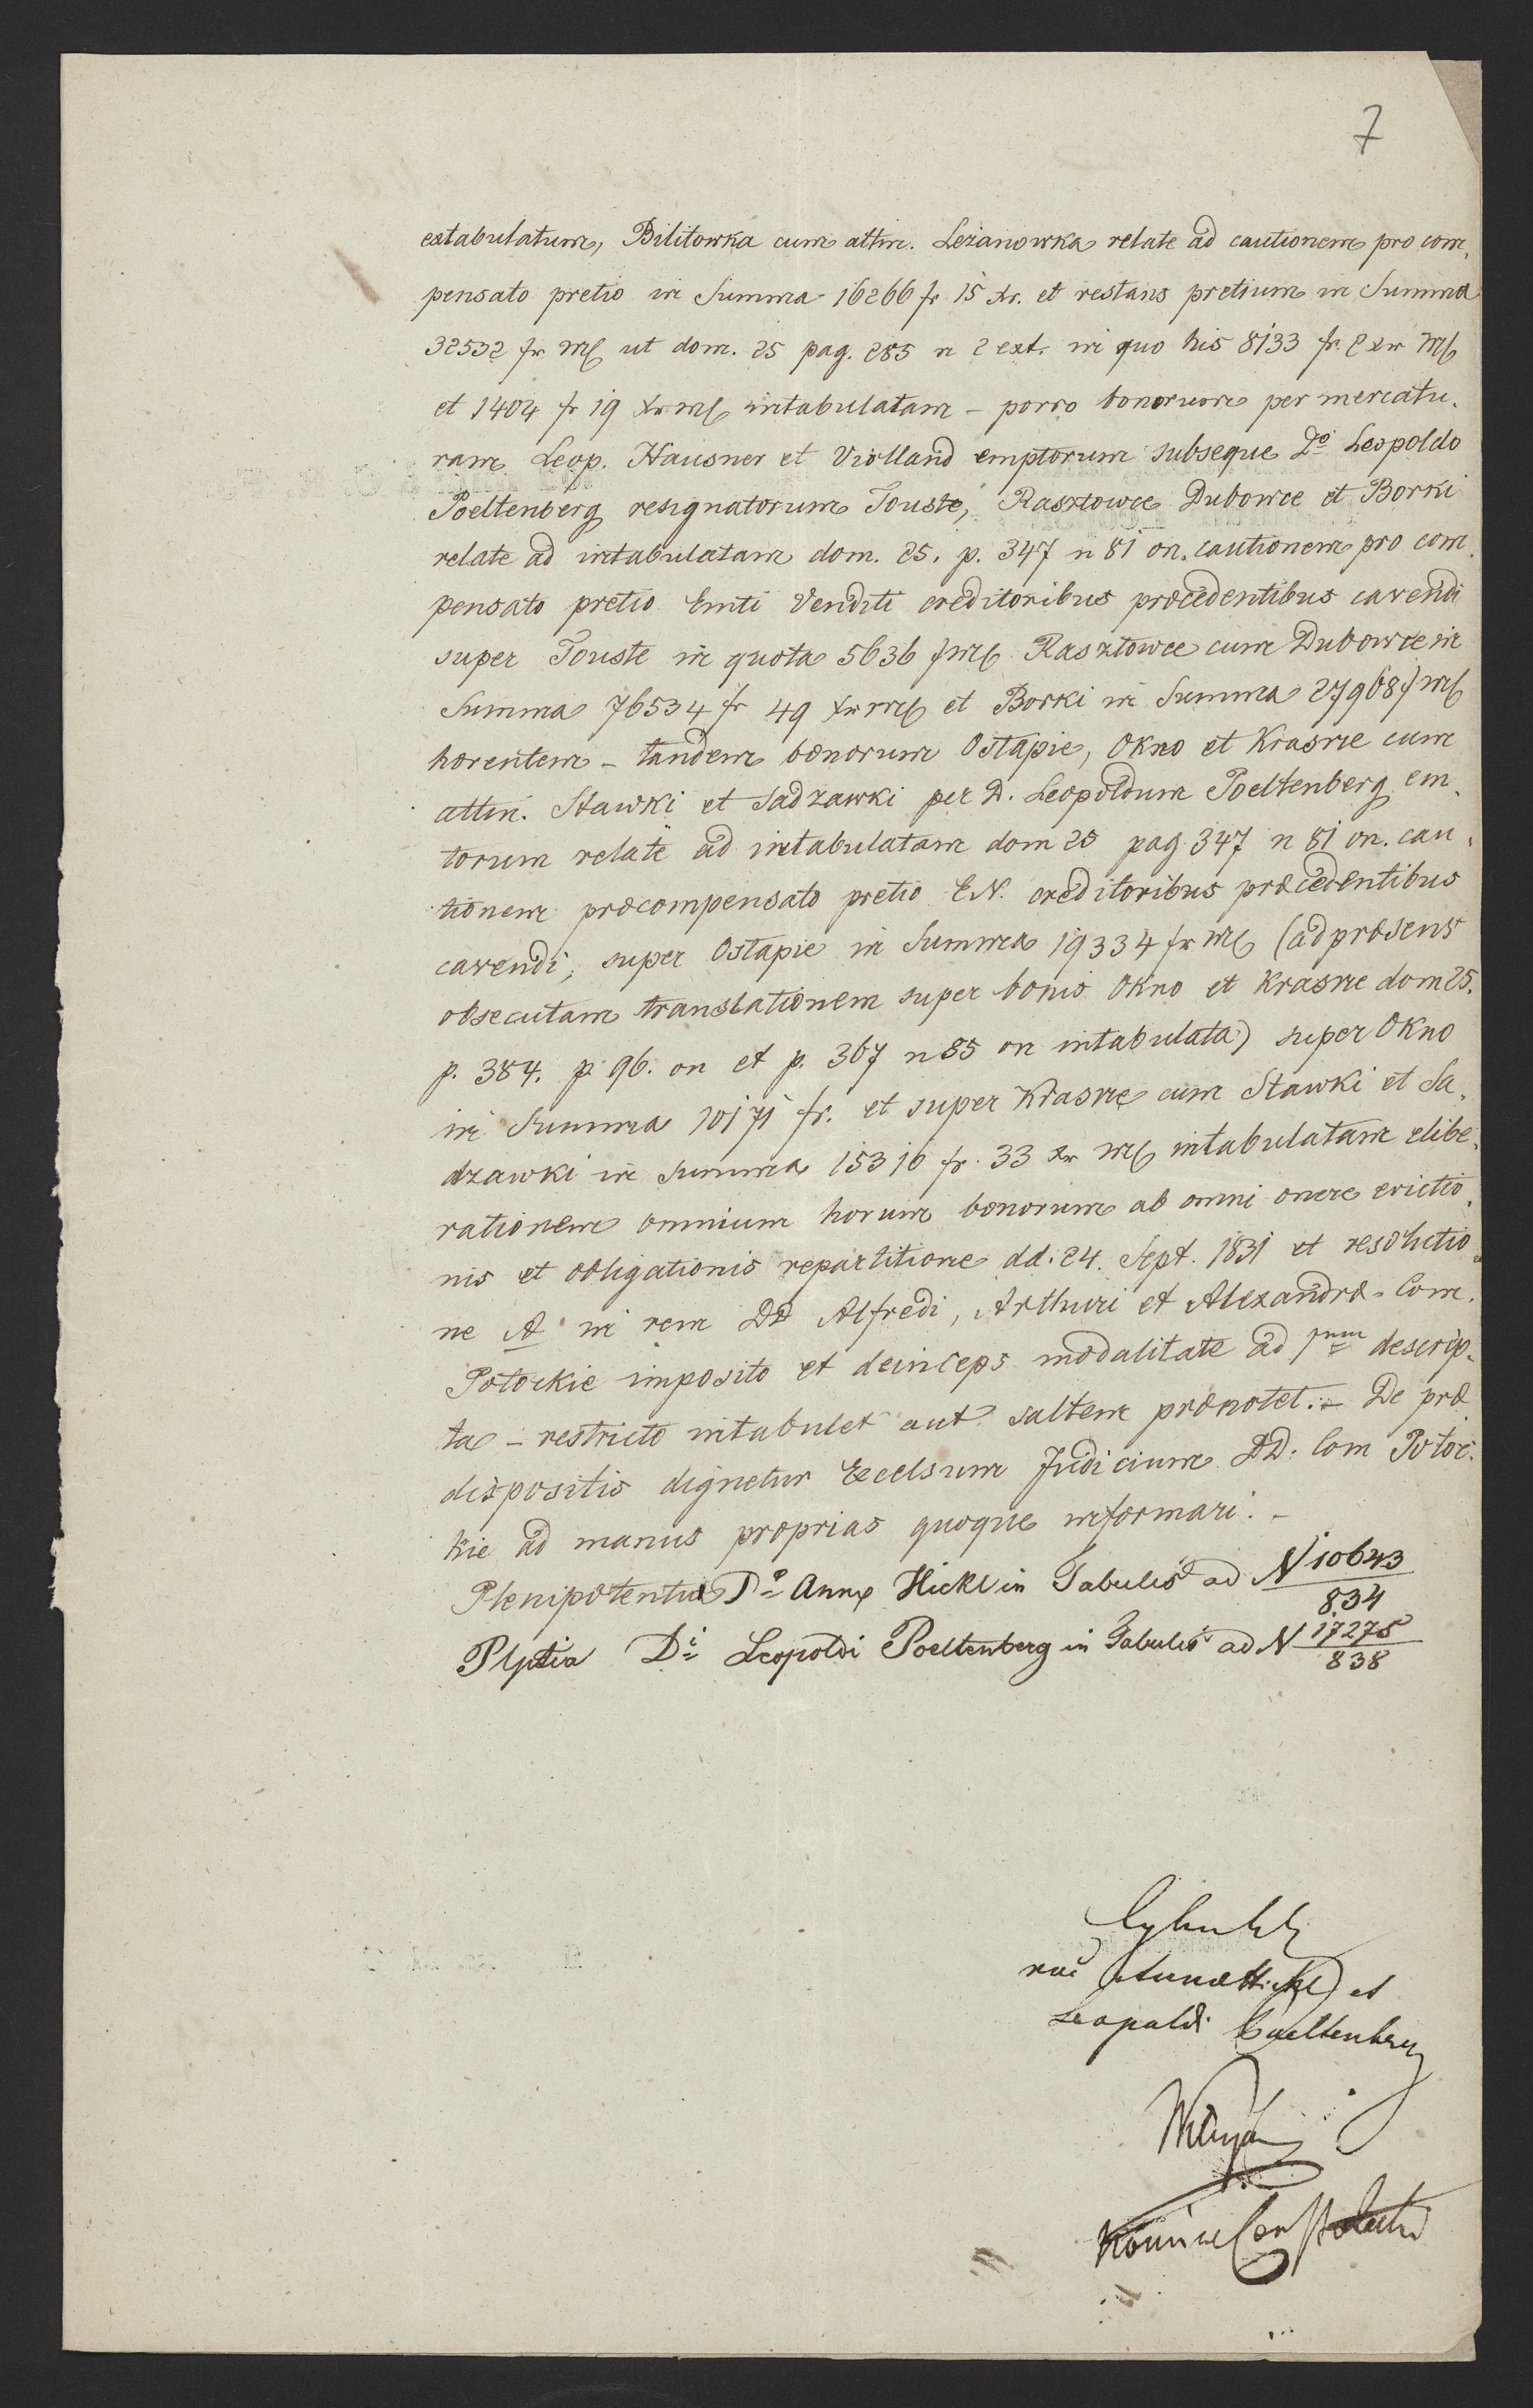 7
extabulatum, Bilitowka cum attin. Leżanowka relate ad cautionem pro com,
pensato pretio in Summa 16266 fr 15 xr. et restans pretium in Summa
32532 fr M ut dom. 25 pag. 285 n 2 ext. in quo his 8133 fr 2 xr M
et 1404 fr 19 xr M intabulatam – porro bonorum per mercatu,
ram Leop. Hausner et Violland emptorum subseque Do Leopoldo
Poeltenberg resignatorum Touste, Rasztowce Dubowce et Borki
relate ad intabulatam dom. 25. p. 347 n 81 on. cautionem pro com,
pensato pretio Emti Venditi creditoribus præcedentibus cavendi
super Touste in quota 5636 f M Rasztowce cum Dubowce in
Summa 76534 fr 49 xr M et Borki in Summa 27968 f M
hærentem – tandem bonorum Ostapie, Okno et Krasne cum
attin. Stawki et Sadzawki per D. Leopoldum Poeltenberg em,
torum relate ad intabulatam dom 25 pag 347 n 81 on. cau,
tionem præcompensato pretio E.V. creditoribus præcedentibus
cavendi, super Ostapie in Summa 19334 fr M (ad præsens
obsecutam translationem super bonis Okno et Krasne dom 25.
p. 384. p 96. on et p. 367 n 85 on intabulata) super Okno
in Summa 10171 fr. et super Krasne cum Stawki et Sa,
dzawki in Summa 15316 fr. 33 xr M intabulatam elibe,
rationem omnium horum bonorum ab omni onere evictio,
nis et obligationis repartitione dd. 24. Sept. 1831 et resolutio,
ne A in rem DD Alfredi, Arthuri et Alexandræ Com.
Potockie imposito et deinceps modalitate ad 1mum descrip,
ta – restricto intabulet aut saltem prænotet. – De præ
dispositis dignetur Excelsum Judicium DD. Com Potoc,
kie ad manus proprias quoque informari. –
Plenipotentia Dæ Annæ Hickl in Tabulis ad N 10643/834
Plptia Di Leopoldi Poeltenberg in Tabulis ad N 17275/838
Annæ Hickl et
Leopoldi Poeltenberg